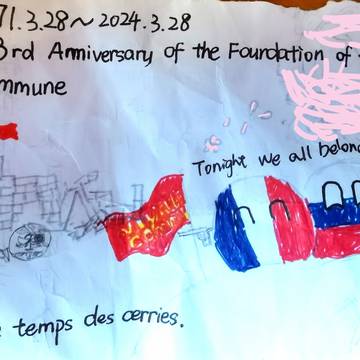 71.3.28～2024.3.28
3rd Anniversary of the Foundation of
mmune
Tonight we all belong
VIVA LA
COMM
temps des cerries.